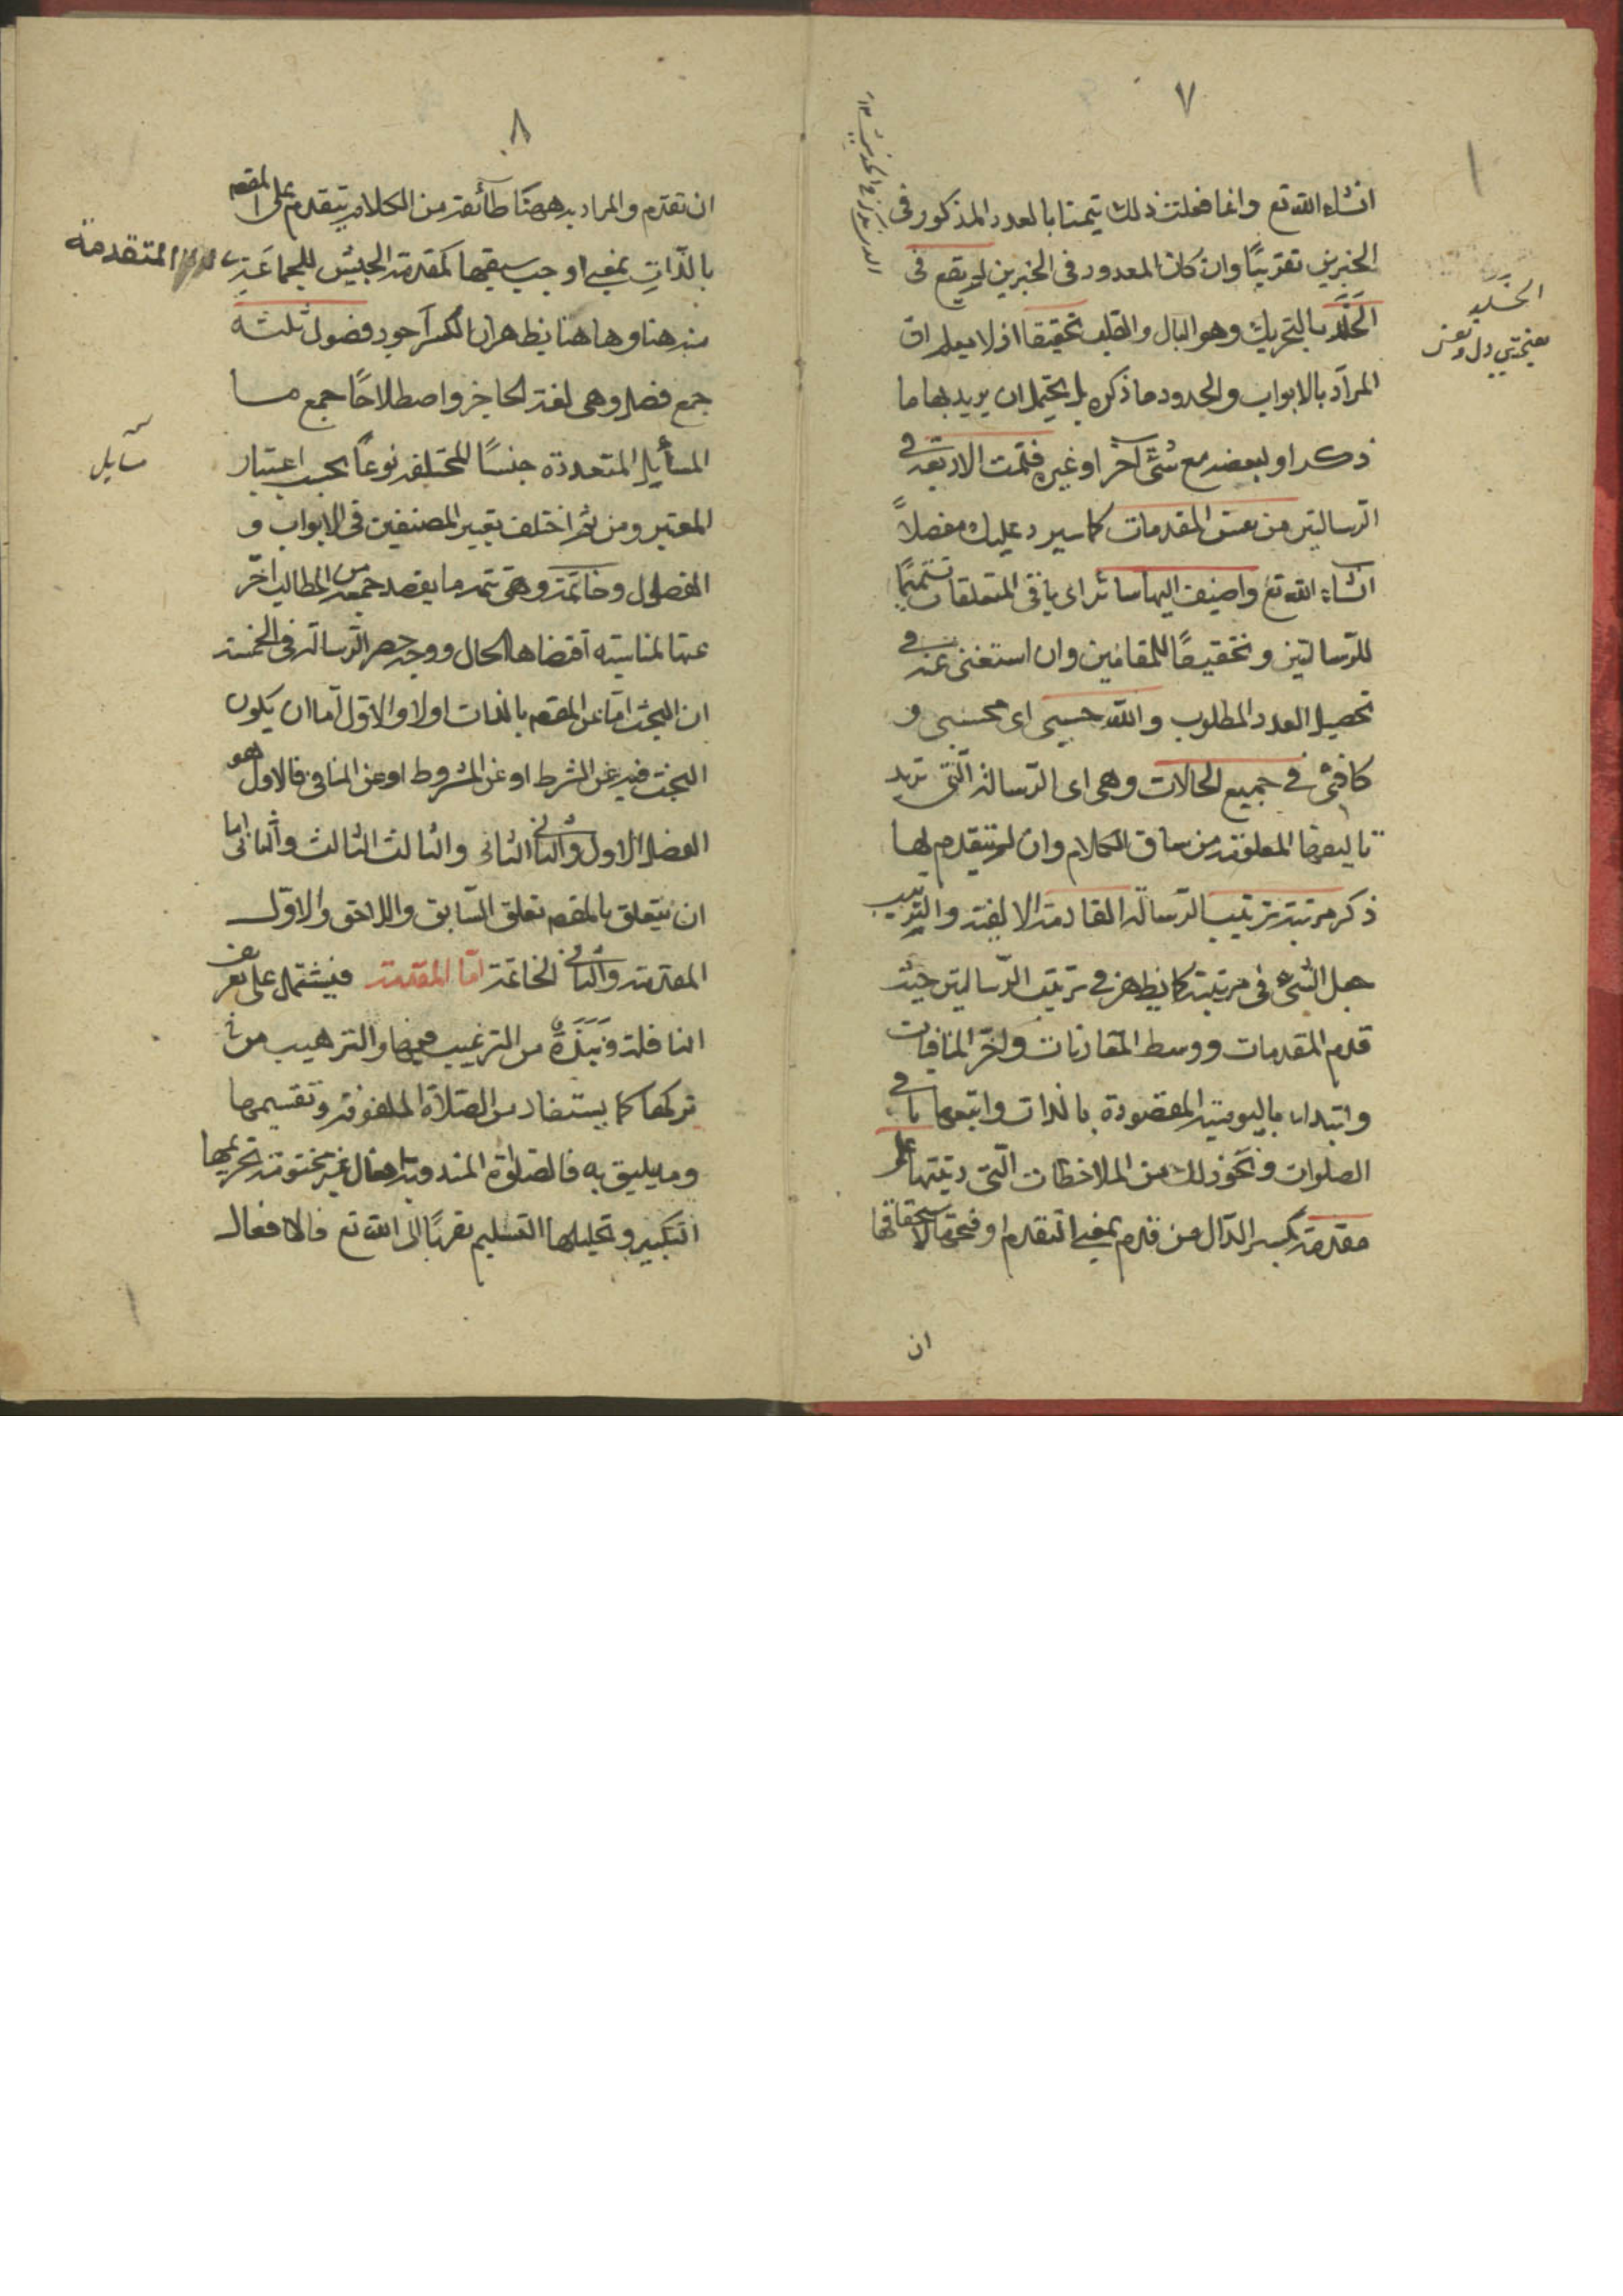 ٧
انشاء الله تع وانما فعلت ذلك تيمنا بالعدد المذكور فى
الخبرين تقريبًا وان كان المعدود فى الخبرين لم يقع فى
الخَلَد بالتحريك وهو البال والقلب تحقيقا اذ لا يعلم ان
المراد بالابواب والحدود ما ذكره بل يحتمل ان يريد بها ما
ذكر او بعضه مع شئ آخر او غيره فتمت الاربعة فى
الرسالتين من نفس المقدمات كما سيرد عليك مفصلاً
انشاء الله تع واضيف اليها سائر اى باقى المتعلقات تتميمًا
للرسالتين وتحقيقًا للمقامين وان استغنى عنه فى
تحصيل العدد المطلوب والله حسبى اى محسبى و
كافىّ فى جميع الحالات وهى اى الرسالة التى تريد
تاليفها المعلومة من ساق الكلام وان لم يتقدم لها
ذكر مرتبة ترتيب الرسالة المقادمة الالفية والترتيب
جعل الشئ فى مرتبته كما يظهر فى ترتيب الرسالتين حيث
قدم المقدمات ووسط المقارنات واخّر المنافيات
وابتداء باليومية المقصودة بالذات واتبعها باقى
الصلوات ونحو ذلك من الملاحظات التى رتبتها على
مقدمة بكسر الدال من قدم بمعنى التقدم او فتحها لاستحقاقها
ان
الخلد
دل ونفس
٨
ان تقدم والمراد به ههنا طائفة من الكلام يتقدم على المقصد
بالذاتِ بمعنى اوجب سبقها كمقدمة الجيش للجماعَةِ
المتقدمة
منه هنا وها هنا يظهر ان الكسر اجود وفصول ثلثة
جمع فصل وهى لغة الحاجز واصطلاحًا جمع ما
المسأيل المتعددة جنسًا المختلفة نوعًا بحسب اعتبار
مسايل
المعتبر ومن ثم اختلف تعبير المصنفين فى الابواب و
الفصول وخاتمة وهى تتمه ما يقصد جمعه من المطالب اخّر
عنها لمناسبته اقتضاها الحال ووجه حصر الرسالة فى الخمسة
ان البحث اما عن المقصد بالذات اولا والاول اما ان يكون
البحث فيه عن الشرط او عن المشروط او عن المنافى فالاول هو
الفصل الاول والثانى الثانى والثالث الثالث والثانى اما
ان يتعلق بالمقصد تعلق السّابق واللاحق والاوّل
المقدمة والثانى الخاتمة امّا المقدمة فيشتمل على تعريف
النافلة ونُبَذَةٌ من الترغيب فيها والترهيب من
تركها كما يستفاد من الصلاة الملفوفة وتقسيمها
وما يليق به فالصلوة المندوبة افعال غير محتومة تحريمها
التكبير وتحليلها التسليم تقربًا الى الله تع فالافعال